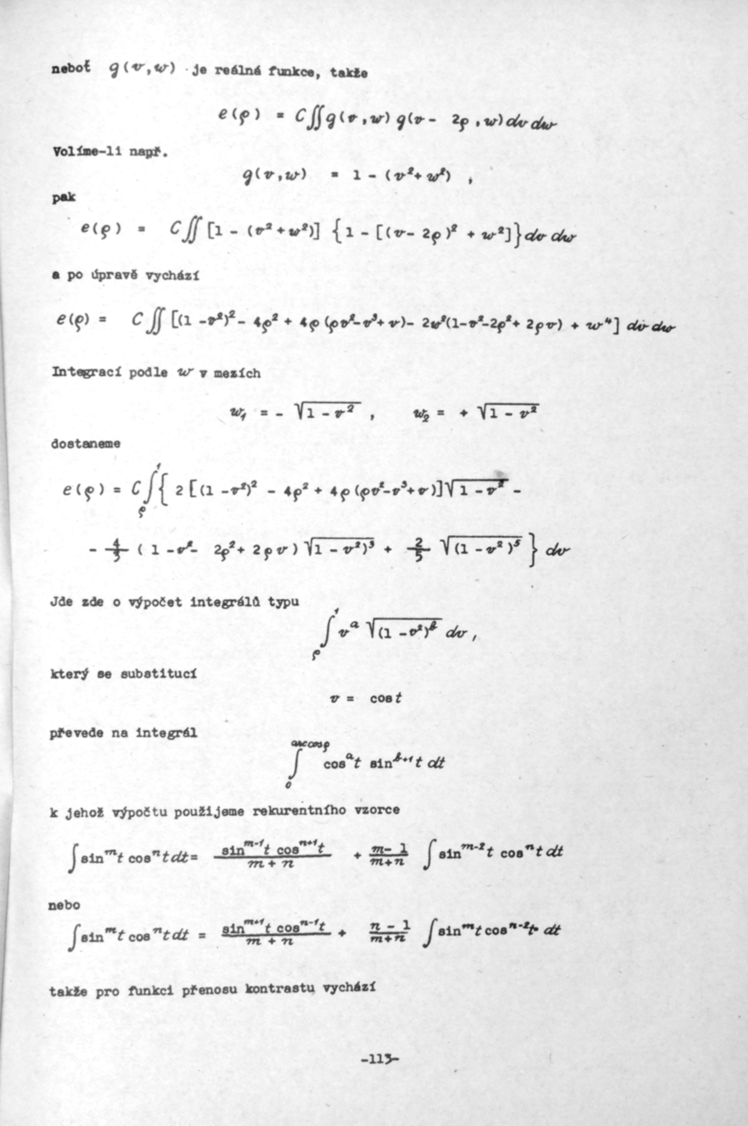 neboť g(v,w) je reálná funkce, takže
e(ρ) = C∬g(v,w) g(v - 2ρ, w) dv dw
Volíme-li např.
g(v,w) = 1 - (v² + w²) ,
pak
e(ρ) = C∬ [1 - (v² + w²)] {1 - [(v - 2ρ)² + w²]} dv dw
a po úpravě vychází
e(ρ) = C∬ [(1 - v²)² - 4ρ² + 4ρ (ρv² - v³ + v) - 2w²(1 - v² - 2ρ² + 2ρv) + w⁴] dv dw
Integrací podle w v mezích
w₁ = - √(1 - v²) , w₂ = + √(1 - v²)
dostaneme
e(ρ) = C∫_ρ^1 { 2 [(1 - v²)² - 4ρ² + 4ρ (ρv² - v³ + v)] √(1 - v²) -
- 4/3 (1 - v² - 2ρ² + 2ρv) √(1 - v²)³ + 2/5 √(1 - v²)⁵ } dv
Jde zde o výpočet integrálů typu
∫_ρ^1 v^a √(1 - v²)^k dv ,
který se substitucí
v = cos t
převede na integrál
∫_0^{arccos ρ} cos^a t sin^{k+1} t dt
k jehož výpočtu použijeme rekurentního vzorce
∫ sin^m t cos^n t dt = - (sin^{m-1} t cos^{n+1} t)/(m + n) + (m - 1)/(m + n) ∫ sin^{m-2} t cos^n t dt
nebo
∫ sin^m t cos^n t dt = (sin^{m+1} t cos^{n-1} t)/(m + n) + (n - 1)/(m + n) ∫ sin^m t cos^{n-2} t dt
takže pro funkci přenosu kontrastu vychází
-113-